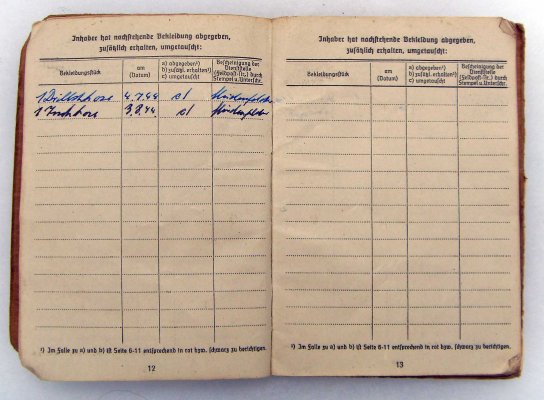 Inhaber hat nachstehende Bekleidung abgegeben,
zusätzlich erhalten, umgetauscht:
Bekleidungsstück
am
(Datum)
a) abgegeben¹)
b) zusätzl. erhalten¹)
c) umgetauscht
Bescheinigung der
Dienststelle
(Feldpost-Nr.) durch
Stempel u. Unterschr.
1 Drillichhose 4.7.44 c)
1 Tuchhose 3.8.44 c)
¹) Im Falle zu a) und b) ist Seite 6-11 entsprechend in rot bzw. schwarz zu berichtigen.
12
Inhaber hat nachstehende Bekleidung abgegeben,
zusätzlich erhalten, umgetauscht:
Bekleidungsstück
am
(Datum)
a) abgegeben¹)
b) zusätzl. erhalten¹)
c) umgetauscht
Bescheinigung der
Dienststelle
(Feldpost-Nr.) durch
Stempel u. Unterschr.
¹) Im Falle zu a) und b) ist Seite 6-11 entsprechend in rot bzw. schwarz zu berichtigen.
13